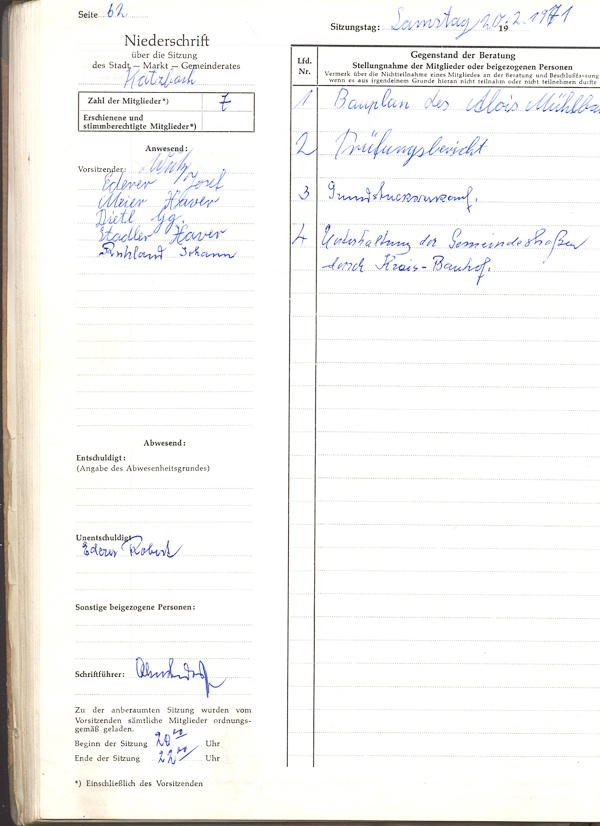 Seite 62
Niederschrift
über die Sitzung
des Stadt – Markt – Gemeinderates
Katzbach
Zahl der Mitglieder*) 7
Erschienene und
stimmberechtigte Mitglieder*)
Anwesend:
Vorsitzender:
Ederer Josef
Meier Xaver
Dietl Gg.
Stadler Xaver
Ruhland Johann
Abwesend:
Entschuldigt:
(Angabe des Abwesenheitsgrundes)
Unentschuldigt
Ederer Robert
Sonstige beigezogene Personen:
Schriftführer:
Zu der anberaumten Sitzung wurden vom
Vorsitzenden sämtliche Mitglieder ordnungs-
gemäß geladen.
Beginn der Sitzung 20 00 Uhr
Ende der Sitzung 22 00 Uhr
*) Einschließlich des Vorsitzenden
Sitzungstag: Samstag 20.2.1971
19
Lfd.
Nr.
Gegenstand der Beratung
Stellungnahme der Mitglieder oder beigezogenen Personen
Vermerk über die Nichtteilnahme eines Mitgliedes an der Beratung und Beschlußfassung
wenn es aus irgendeinem Grunde hieran nicht teilnahm oder nicht teilnehmen durfte
1 Bauplan des Alois
2 Prüfungsbericht
3 Grundstücksverkauf.
4 Unterhaltung der Gemeindestraßen
durch Kreis-Bauhof.